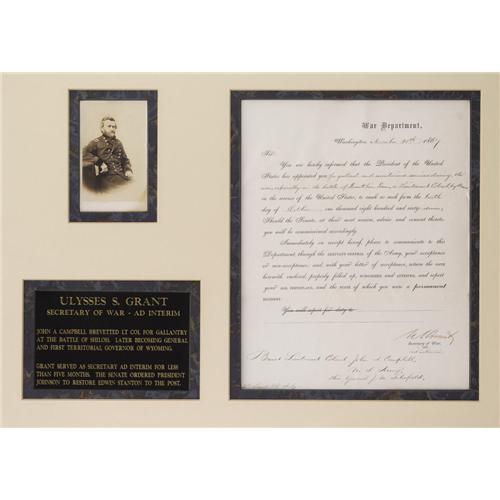 ULYSSES S. GRANT
SECRETARY OF WAR - AD INTERIM
JOHN A CAMPBELL BREVETTED LT COL FOR GALLANTRY
AT THE BATTLE OF SHILOH. LATER BECOMING GENERAL
AND FIRST TERRITORIAL GOVERNOR OF WYOMING.
GRANT SERVED AS SECRETARY AD INTERIM FOR LESS
THAN FIVE MONTHS. THE SENATE ORDERED PRESIDENT
JOHNSON TO RESTORE EDWIN STANTON TO THE POST.
War Department,
Washington, 1867
Sir:
You are hereby informed that the President of the United
States has appointed you for gallant and meritorious services during the
war, especially in the battle of
in the service of the United States, to rank as such from the
day of one thousand eight hundred and sixty
Should the Senate, at their next session, advise and consent thereto,
you will be commissioned accordingly.
Immediately on receipt hereof, please to communicate to this
Department, through the ADJUTANT GENERAL of the Army, your acceptance
or non-acceptance; and, with your letter of acceptance, return the OATH
herewith enclosed, properly filled up, SUBSCRIBED and ATTESTED, and report
your AGE, BIRTHPLACE, and the STATE of which you were a PERMANENT
RESIDENT.
You will report for duty to
Secretary of War,
ad interim
Brevet Lieutenant Colonel John A Campbell,
U. S. Army